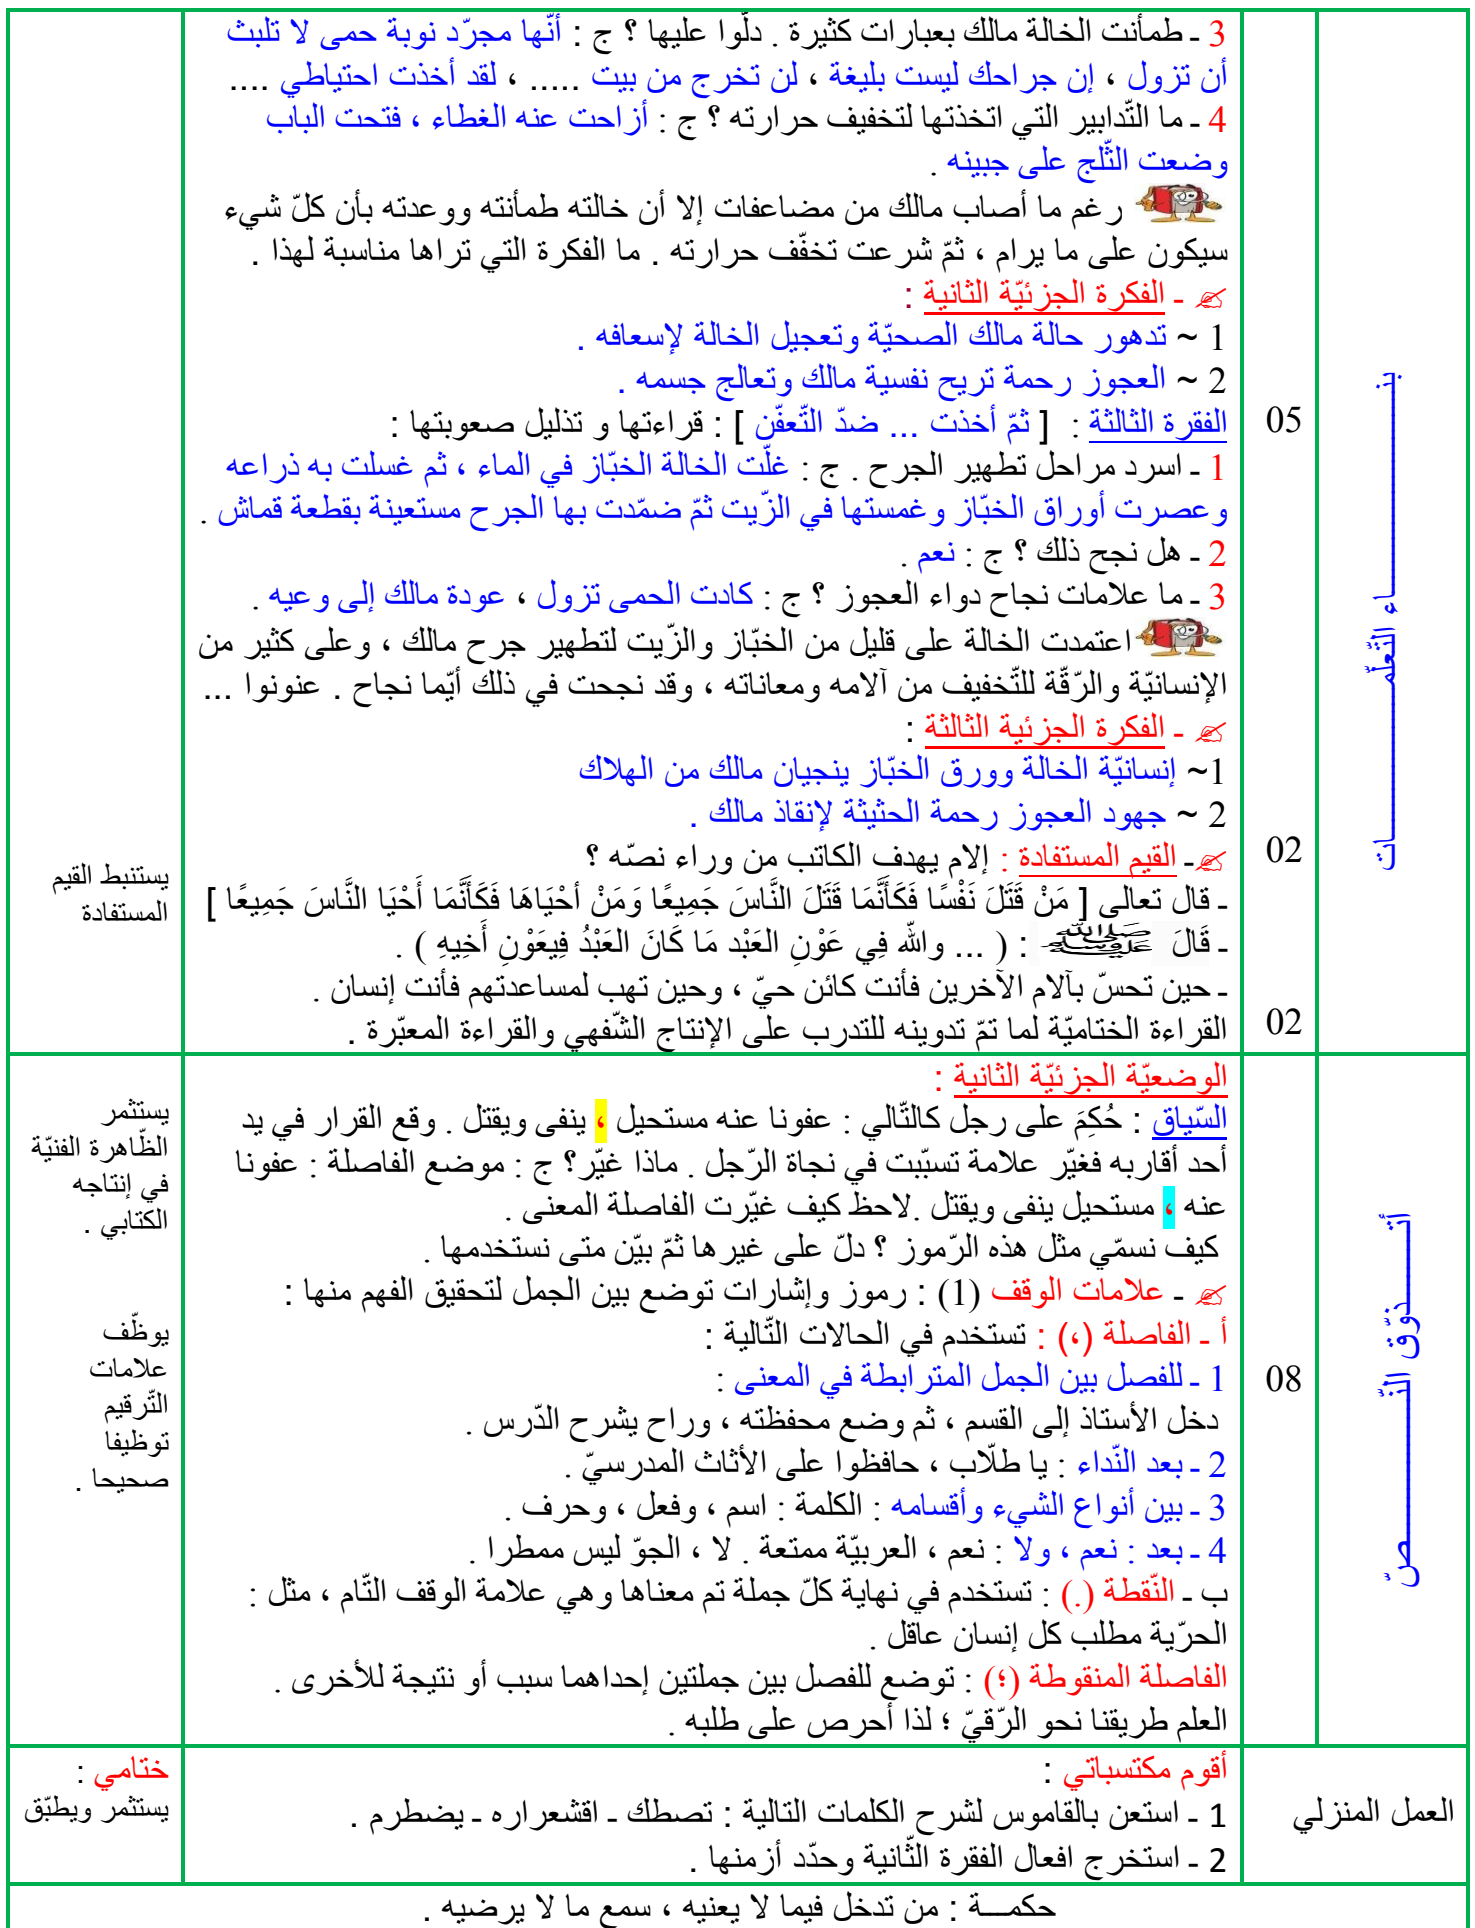 3 ـ طمأنت الخالة مالك بعبارات كثيرة . دلّوا عليها ؟ ج : أنّها مجرّد نوبة حمى لا تلبث
أن تزول ، إن جراحك ليست بليغة ، لن تخرج من بيت ..... ، لقد أخذت احتياطي ....
4 ـ ما التّدابير التي اتخذتها لتخفيف حرارته ؟ ج : أزاحت عنه الغطاء ، فتحت الباب
وضعت الثّلج على جبينه .
رغم ما أصاب مالك من مضاعفات إلا أن خالته طمأنته ووعدته بأن كلّ شيء
سيكون على ما يرام ، ثمّ شرعت تخفّف حرارته . ما الفكرة التي تراها مناسبة لهذا .
✍ ـ الفكرة الجزئيّة الثانية :
1 ~ تدهور حالة مالك الصحيّة وتعجيل الخالة لإسعافه .
2 ~ العجوز رحمة تريح نفسية مالك وتعالج جسمه .
الفقرة الثالثة : [ ثمّ أخذت ... ضدّ التّعفّن ] : قراءتها و تذليل صعوبتها :
1 ـ اسرد مراحل تطهير الجرح . ج : غلّت الخالة الخبّاز في الماء ، ثم غسلت به ذراعه
وعصرت أوراق الخبّاز وغمستها في الزّيت ثمّ ضمّدت بها الجرح مستعينة بقطعة قماش .
2 ـ هل نجح ذلك ؟ ج : نعم .
3 ـ ما علامات نجاح دواء العجوز ؟ ج : كادت الحمى تزول ، عودة مالك إلى وعيه .
اعتمدت الخالة على قليل من الخبّاز والزّيت لتطهير جرح مالك ، وعلى كثير من
الإنسانيّة والرّقّة للتّخفيف من آلامه ومعاناته ، وقد نجحت في ذلك أيّما نجاح . عنونوا ...
✍ ـ الفكرة الجزئية الثالثة :
1~ إنسانيّة الخالة وورق الخبّاز ينجيان مالك من الهلاك
2 ~ جهود العجوز رحمة الحثيثة لإنقاذ مالك .
✍ـ القيم المستفادة : إلام يهدف الكاتب من وراء نصّه ؟
ـ قال تعالى [ مَنْ قَتَلَ نَفْسًا فَكَأَنَّمَا قَتَلَ النَّاسَ جَمِيعًا وَمَنْ أحْيَاهَا فَكَأَنَّمَا أَحْيَا النَّاسَ جَمِيعًا ]
ـ قَالَ ﷺ : ( ... واللّه فِي عَوْنِ العَبْد مَا كَانَ العَبْدُ فِيعَوْنِ أَخِيهِ ) .
ـ حين تحسّ بآلام الآخرين فأنت كائن حيّ ، وحين تهب لمساعدتهم فأنت إنسان .
القراءة الختاميّة لما تمّ تدوينه للتدرب على الإنتاج الشّفهي والقراءة المعبّرة .
05
02
02
بنـــاء التّعلّمـــات
يستنبط القيم
المستفادة
الوضعيّة الجزئيّة الثانية :
السّياق : حُكِمَ على رجل كالتّالي : عفونا عنه مستحيل ، ينفى ويقتل . وقع القرار في يد
أحد أقاربه فغيّر علامة تسبّبت في نجاة الرّجل . ماذا غيّر؟ ج : موضع الفاصلة : عفونا
عنه ، مستحيل ينفى ويقتل .لاحظ كيف غيّرت الفاصلة المعنى .
كيف نسمّي مثل هذه الرّموز ؟ دلّ على غيرها ثمّ بيّن متى نستخدمها .
✍ ـ علامات الوقف (1) : رموز وإشارات توضع بين الجمل لتحقيق الفهم منها :
أ ـ الفاصلة (،) : تستخدم في الحالات التّالية :
1 ـ للفصل بين الجمل المترابطة في المعنى :
دخل الأستاذ إلى القسم ، ثم وضع محفظته ، وراح يشرح الدّرس .
2 ـ بعد النّداء : يا طلّاب ، حافظوا على الأثاث المدرسيّ .
3 ـ بين أنواع الشيء وأقسامه : الكلمة : اسم ، وفعل ، وحرف .
4 ـ بعد : نعم ، ولا : نعم ، العربيّة ممتعة . لا ، الجوّ ليس ممطرا .
ب ـ النّقطة (.) : تستخدم في نهاية كلّ جملة تم معناها وهي علامة الوقف التّام ، مثل :
الحرّية مطلب كل إنسان عاقل .
الفاصلة المنقوطة (؛) : توضع للفصل بين جملتين إحداهما سبب أو نتيجة للأخرى .
العلم طريقنا نحو الرّقيّ ؛ لذا أحرص على طلبه .
08
أتـــذوّق النّـــصّ
يستثمر
الظّاهرة الفنيّة
في إنتاجه
الكتابي .
يوظّف
علامات
التّرقيم
توظيفا
صحيحا .
العمل المنزلي
أقوم مكتسباتي :
1 ـ استعن بالقاموس لشرح الكلمات التالية : تصطك ـ اقشعراره ـ يضطرم .
2 ـ استخرج افعال الفقرة الثّانية وحدّد أزمنها .
ختامي :
يستثمر ويطبّق
حكمـــة : من تدخل فيما لا يعنيه ، سمع ما لا يرضيه .